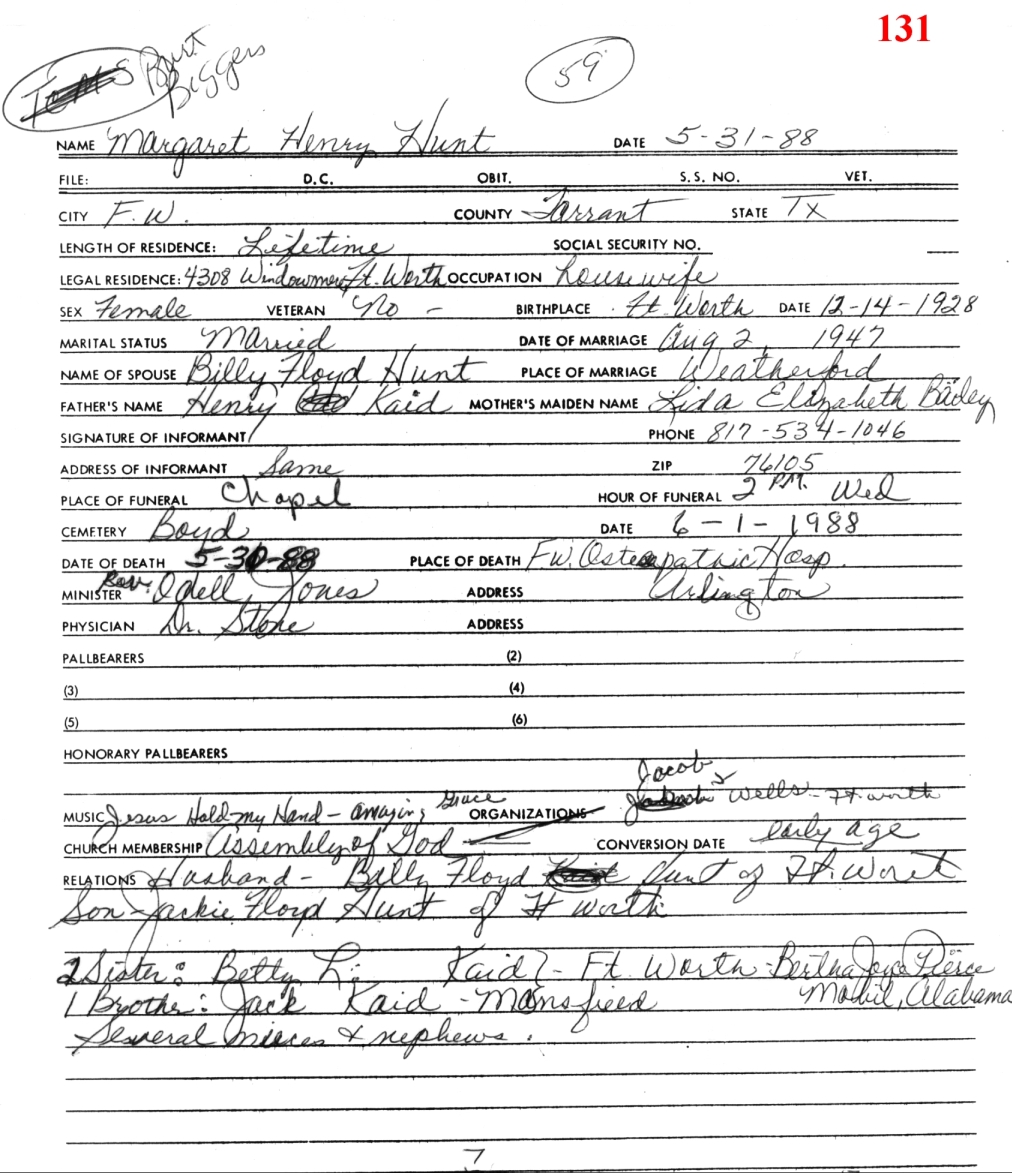 131
Burt
Biggers
59
NAME Margaret Henry Hunt DATE 5-31-88
FILE: D.C. OBIT. S.S. NO. VET.
CITY F.W. COUNTY Tarrant STATE TX
LENGTH OF RESIDENCE: Lifetime SOCIAL SECURITY NO.
LEGAL RESIDENCE: 4308 Windowmere Ft. Worth OCCUPATION housewife
SEX Female VETERAN No - BIRTHPLACE Ft. Worth DATE 12-14-1928
MARITAL STATUS Married DATE OF MARRIAGE Aug 2, 1947
NAME OF SPOUSE Billy Floyd Hunt PLACE OF MARRIAGE Weatherford
FATHER'S NAME Henry Kaid MOTHER'S MAIDEN NAME Lida Elizabeth
SIGNATURE OF INFORMANT PHONE 817-534-1046
ADDRESS OF INFORMANT Same ZIP 76105
PLACE OF FUNERAL Chapel HOUR OF FUNERAL 2 P.M. Wed
CEMETERY Boyd DATE 6-1-1988
DATE OF DEATH 5-30-88 PLACE OF DEATH F.W. Osteopathic Hosp.
MINISTER Rev. Odell Jones ADDRESS Arlington
(1)
PHYSICIAN Dr. Stone ADDRESS
PALLBEARERS (2)
(3) (4)
(5) (6)
HONORARY PALLBEARERS
Jacob
MUSIC Jesus Hold my Hand - amazing Grace ORGANIZATIONS Wells - Ft worth
CHURCH MEMBERSHIP Assembly of God CONVERSION DATE early age
RELATIONS Husband - Billy Floyd Hunt of Ft. Worth
Son - Jackie Floyd Hunt of Ft worth
2 Sister: Betty Kaid - Ft. Worth - Bertha Joyce Pierce
1 Brother: Jack Kaid - Mansfieed Mobil, Alabama
Several nieces & nephews.
7